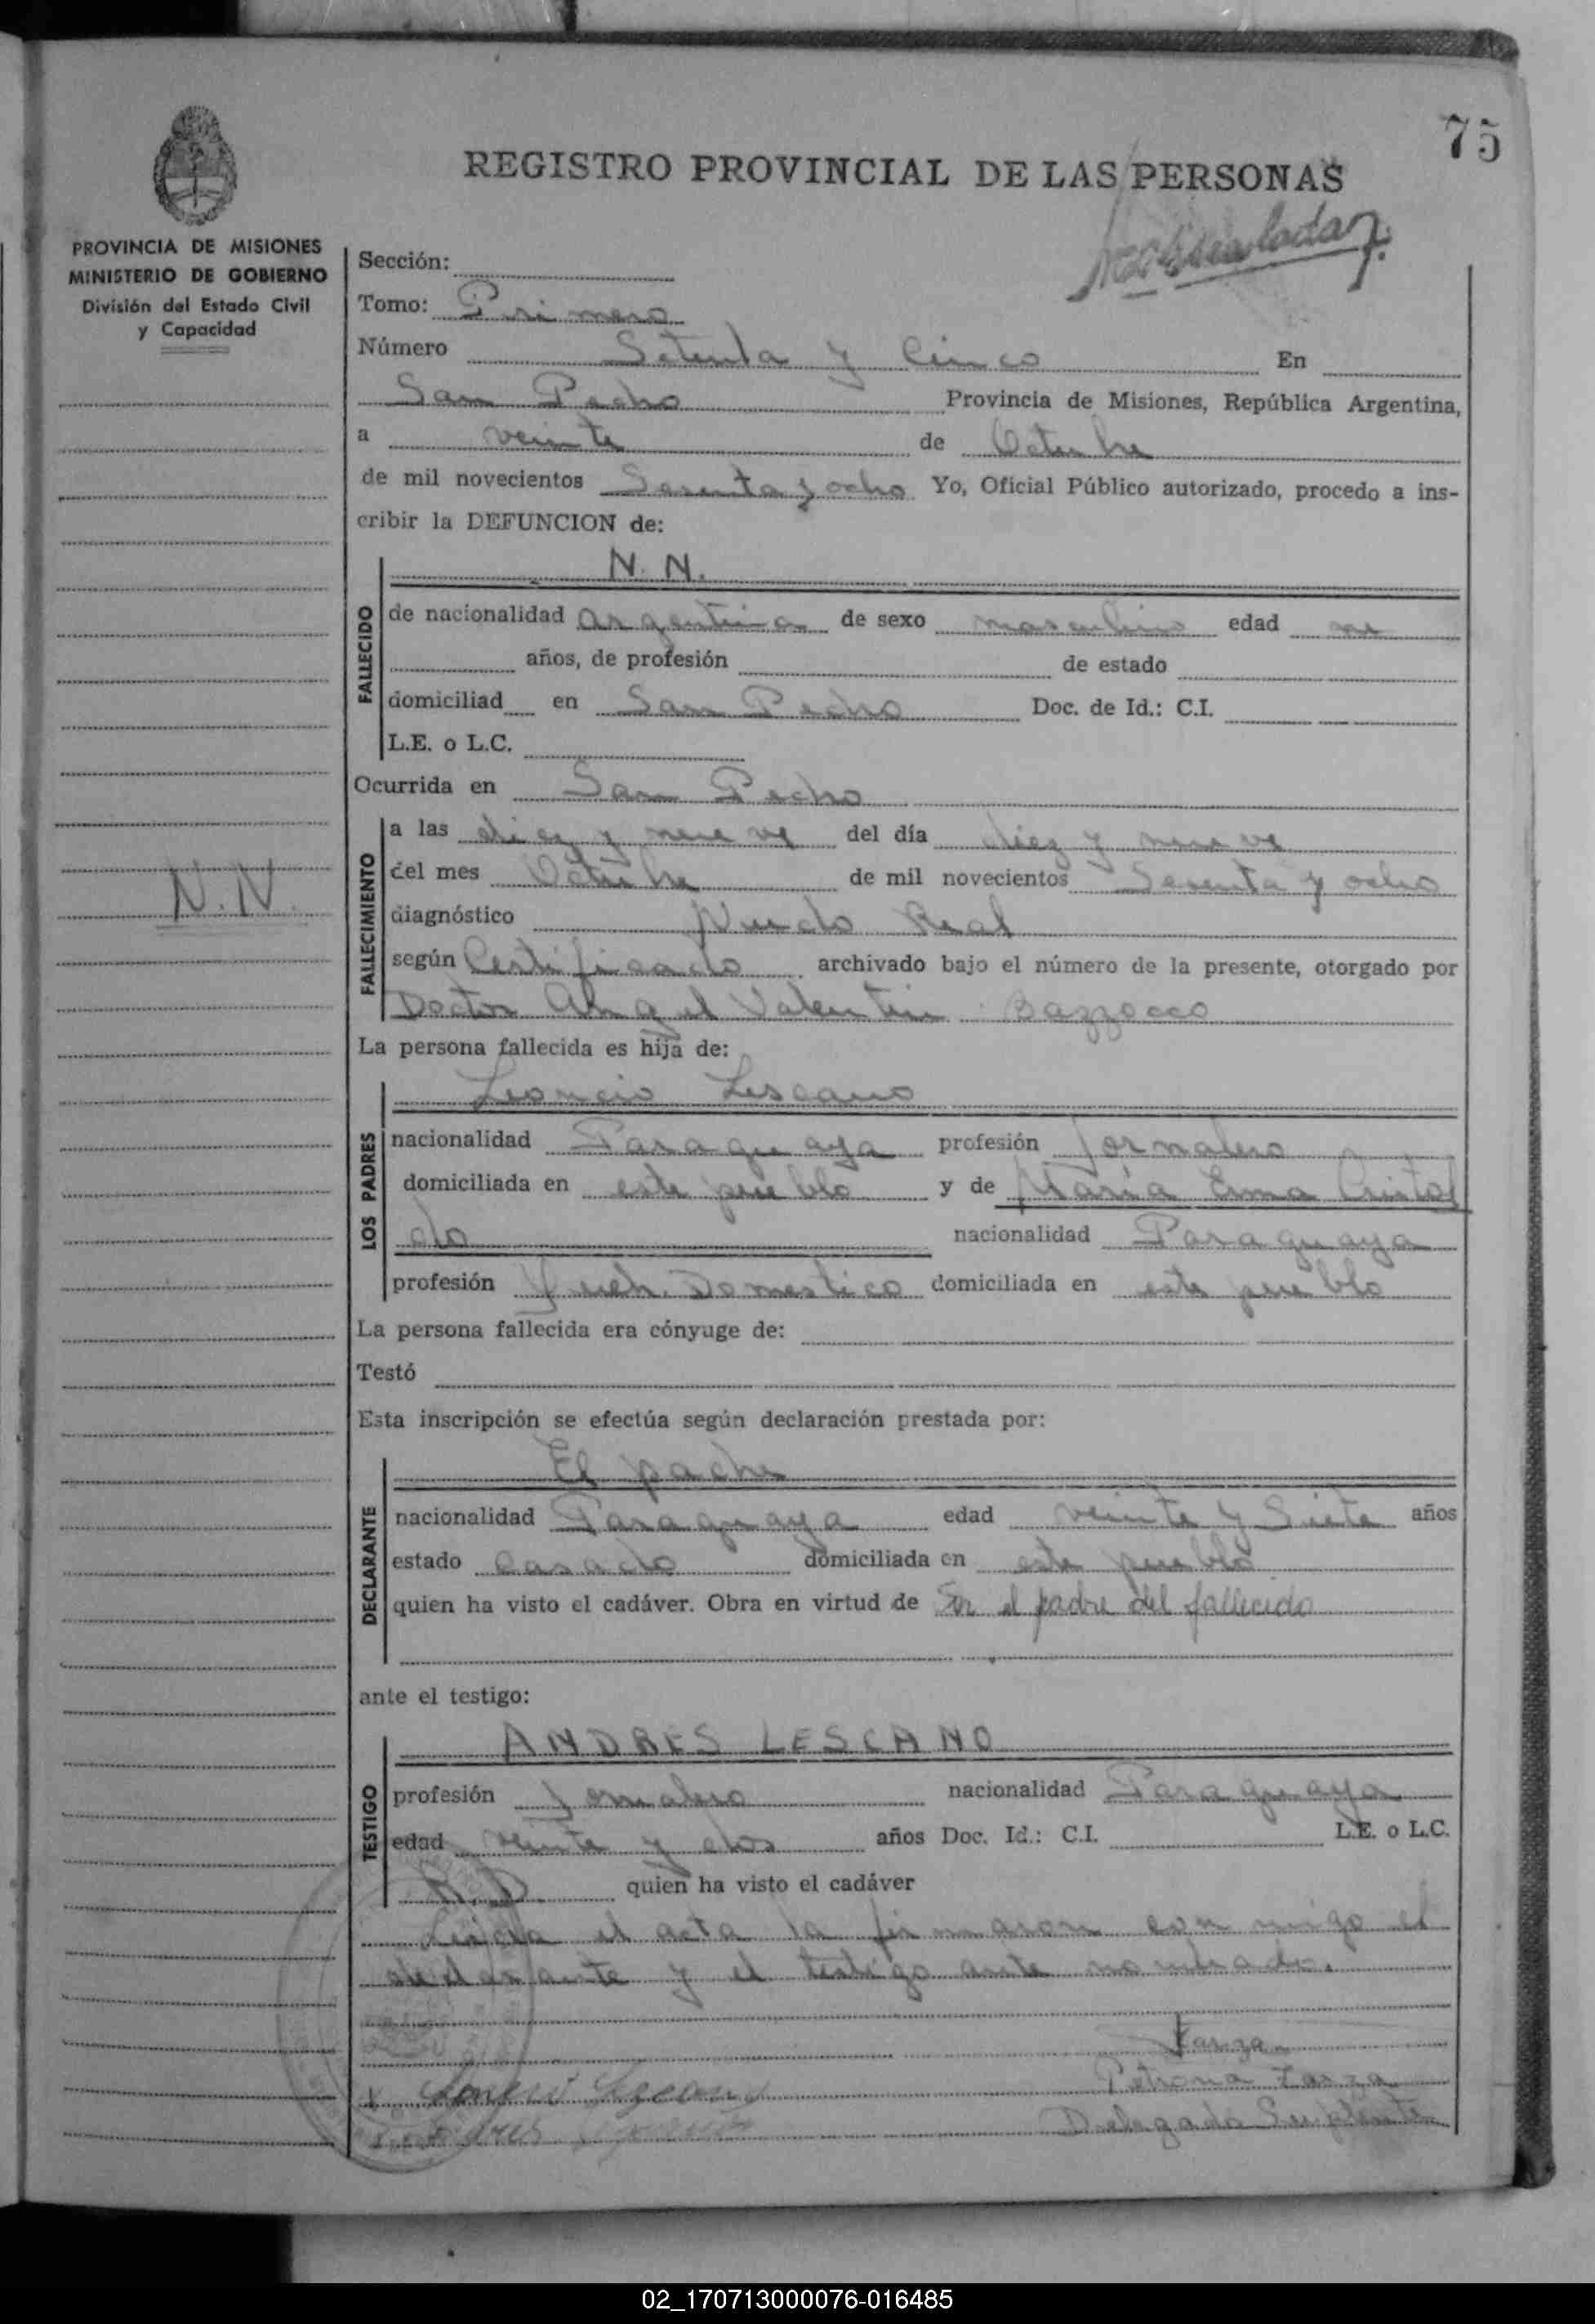 75
REGISTRO PROVINCIAL DE LAS PERSONAS
PROVINCIA DE MISIONES
MINISTERIO DE GOBIERNO
División del Estado Civil
y Capacidad
N.N.
Sección:
Tomo: Primero
Número Setenta y Cinco En
San Pedro Provincia de Misiones, República Argentina,
a veinte de Octubre
de mil novecientos Sesenta y ocho Yo, Oficial Público autorizado, procedo a ins-
cribir la DEFUNCION de:
N. N.
FALLECIDO
de nacionalidad argentina de sexo masculino edad
años, de profesión de estado
domiciliad en San Pedro Doc. de Id.: C.I.
L.E. o L.C.
Ocurrida en San Pedro
FALLECIMIENTO
a las diez y nueve del día diez y nueve
del mes Octubre de mil novecientos Sesenta y ocho
diagnóstico Nudo Real
según Certificado archivado bajo el número de la presente, otorgado por
Doctor Angel Valentin Bazzocco
La persona fallecida es hija de:
Leoncio Lescano
LOS PADRES
nacionalidad Paraguaya profesión Jornalero
domiciliada en este pueblo y de María Erma Cristal
do nacionalidad Paraguaya
profesión Queh. Domestico domiciliada en este pueblo
La persona fallecida era cónyuge de:
Testó
Esta inscripción se efectúa según declaración prestada por:
El padre
DECLARANTE
nacionalidad Paraguaya edad veinte y Siete años
estado casado domiciliada en este pueblo
quien ha visto el cadáver. Obra en virtud de Ser el padre del fallecido
ante el testigo:
ANDRES LESCANO
TESTIGO
profesión Jornalero nacionalidad Paraguaya
edad veinte y dos años Doc. Id.: C.I. L.E. o L.C.
quien ha visto el cadáver
Leida el acta la firmaron con migo el
declarante y el testigo ante nombrado.
Zarza
Petrona Zarza
Delegada Suplente
02_170713000076-016485